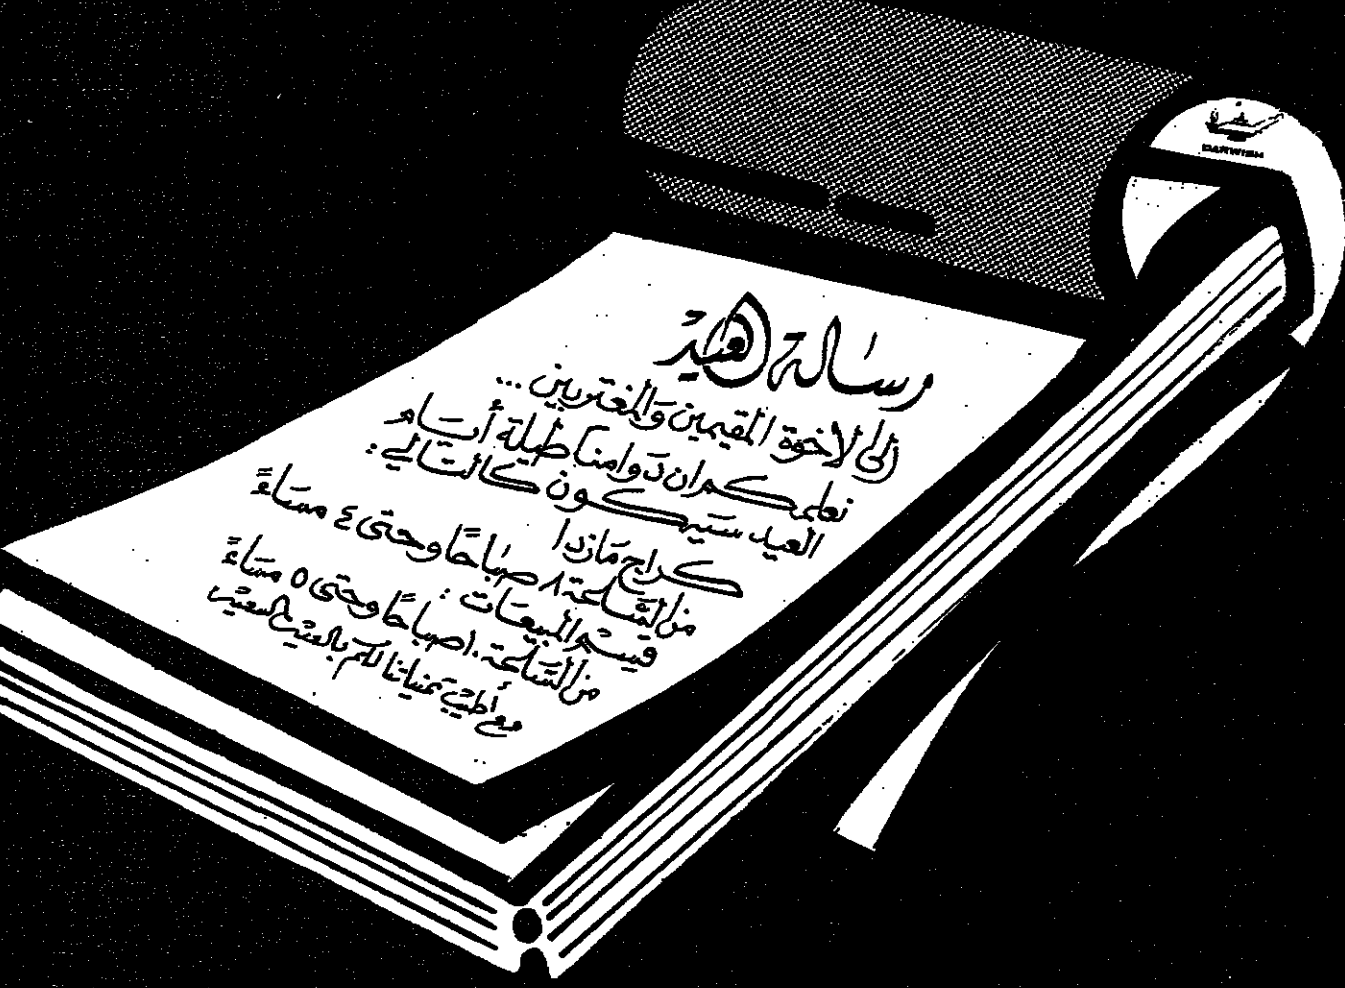 DARWISH
رسالة عيد
إلى الأخوة المقيمين والمغتربين ...
نعلمكم ان دوامنا طيلة أيام
العيد سيكون كالتالي :
كراج مازدا
من الساعة ٨ صباحًا وحتى ٤ مساءً
قسم المبيعات :
من الساعة ١٠ صباحًا وحتى ٥ مساءً
مع أطيب تمنياتنا لكم بالعيد السعيد